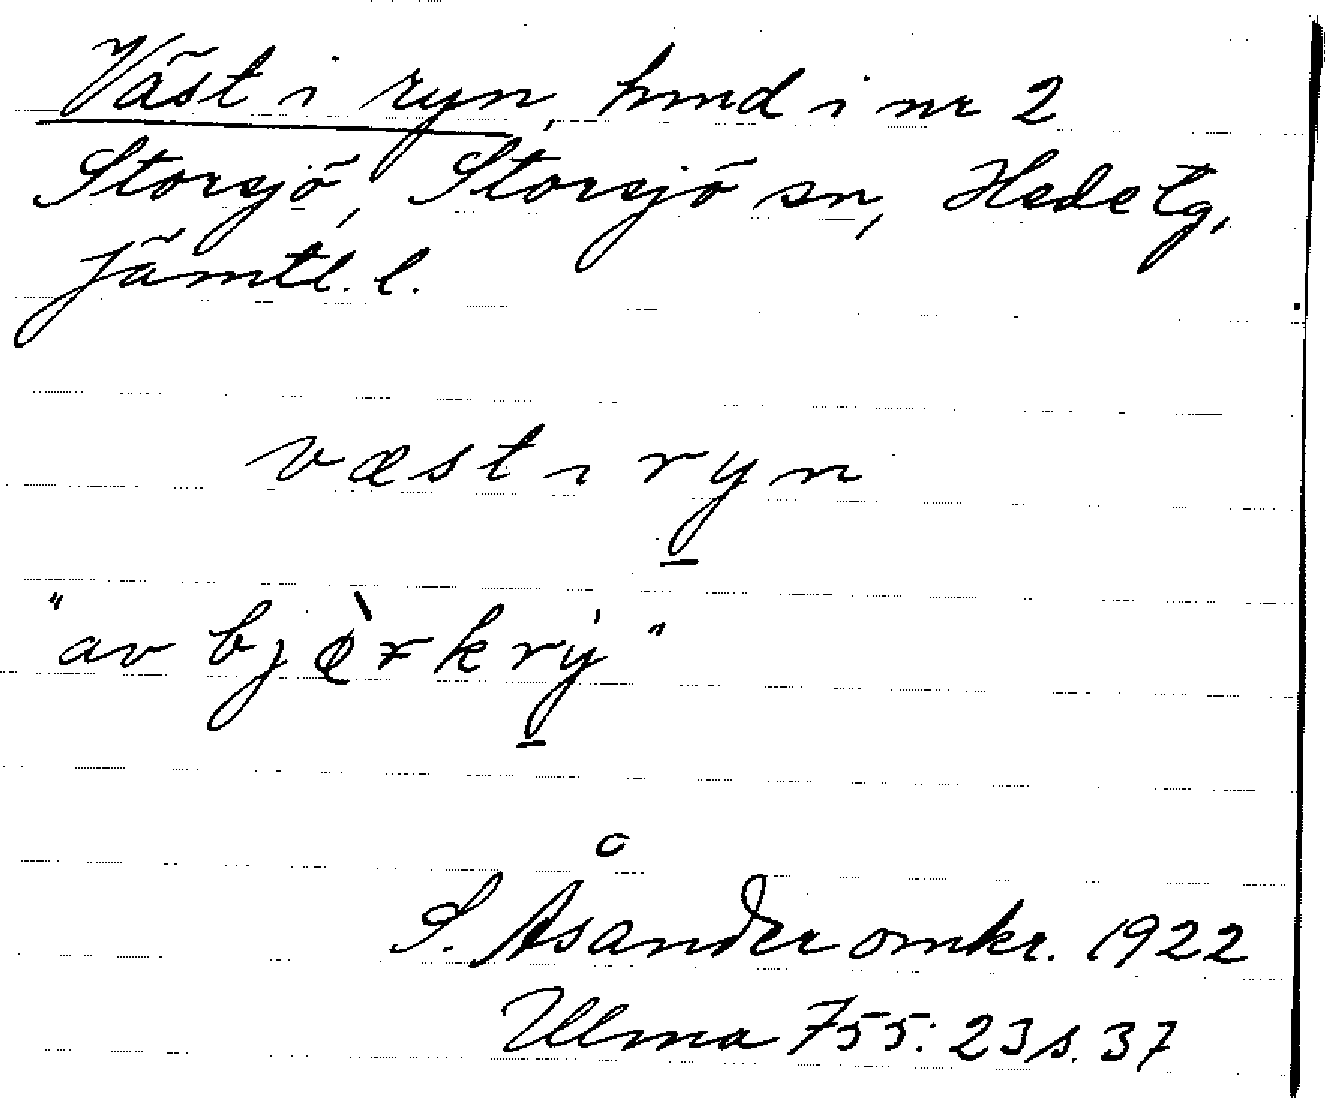 Väst i ryn, hmd i nr 2
Storsjö, Storsjö sn, Hede tg,
Jämtl. l.
væst ı ryn
"av bjè̜rkrý"
S. Åsander omkr. 1922
Ulma 755:23 s. 37